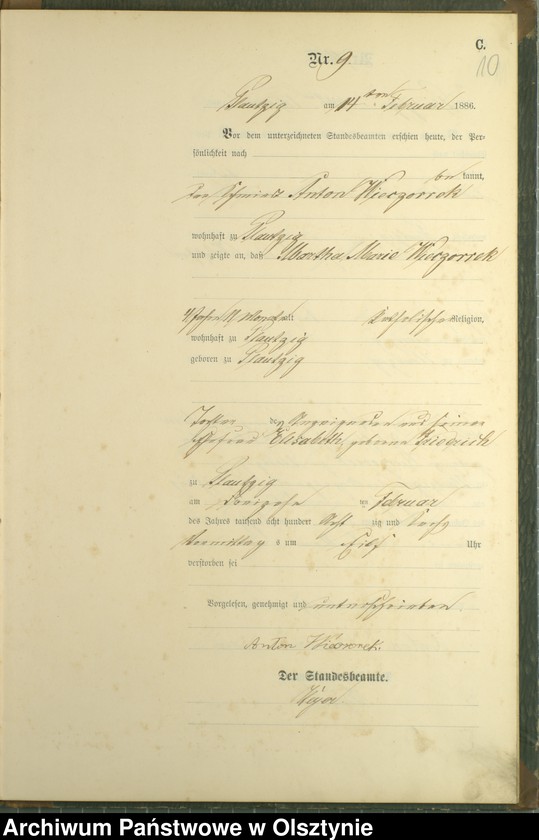 C.
10
Nr. 9.
Plautzig am 14ten Februar 1886.
Vor dem unterzeichneten Standesbeamten erschien heute, der Per-
sönlichkeit nach
be kannt,
der Schmied Anton Wieczorrek
wohnhaft zu Plautzig
und zeigte an, daß Martha Marie Wieczorrek
Monate alt katholischer Religion,
wohnhaft zu Plautzig
geboren zu Plautzig
Tochter des Anzeigenden und seiner
Ehefrau Elisabeth, geborene
zu Plautzig
am ten Februar
des Jahres tausend acht hundert acht zig und sechs
Vormittag s um Uhr
verstorben sei
Vorgelesen, genehmigt und unterschrieben
Anton
Der Standesbeamte.
Archiwum Państwowe w Olsztynie